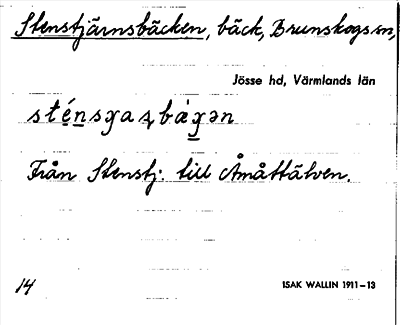 Stenstjärnsbäcken, bäck, Brunskogs sn,
Jösse hd, Värmlands län
Från Stenstj. till Åmåttälven.
14
ISAK WALLIN 1911–13